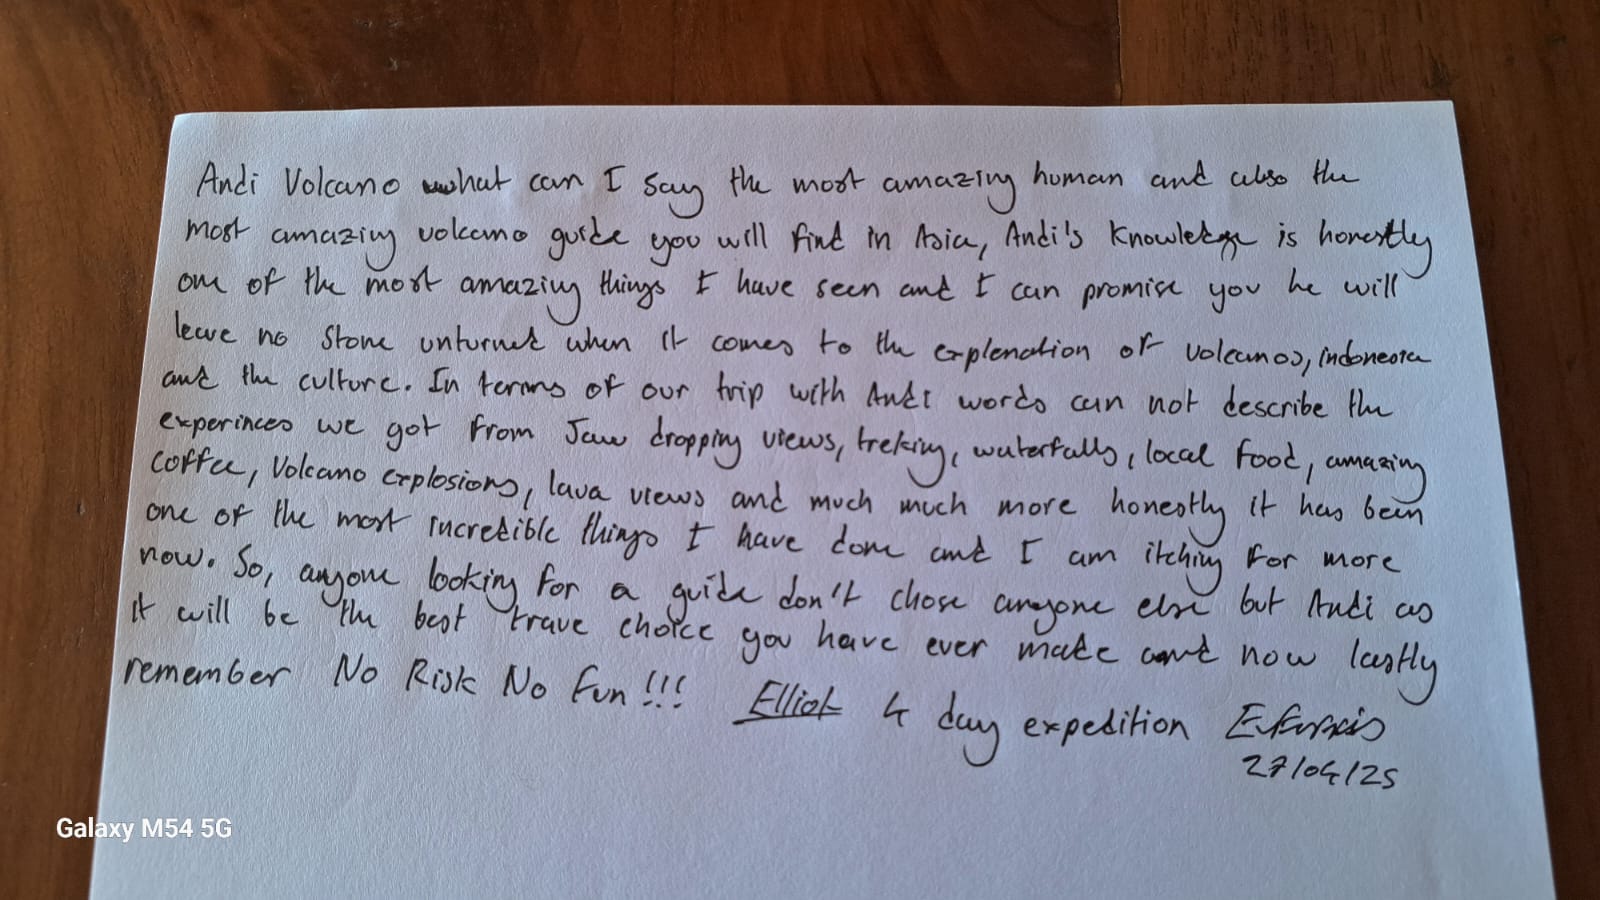 Andi Volcano what can I say the most amazing human and also the
most amazing volcano guide you will find in Asia, Andi's Knowledge is honestly
one of the most amazing things I have seen and I can promise you he will
leave no stone unturned when it comes to the explenation of volcanos, indonesia
and the culture. In terms of our trip with Andi words can not describe the
experinces we got from Jaw dropping views, treking, waterfalls, local food, amazing
coffee, Volcano explosions, lava views and much much more honestly it has been
one of the most incredible things I have done and I am itching for more
now. So, anyone looking for a guide don't chose anyone else but Andi as
it will be the best trave choice you have ever made and now lastly
remember No Risk No Fun!!! Elliot 4 day expedition
27/04/25
Galaxy M54 5G